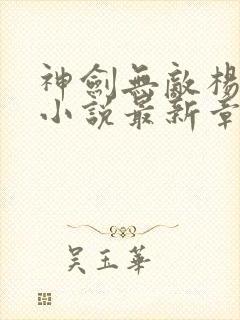 神劍無敵楊
小說最新章
吳玉華